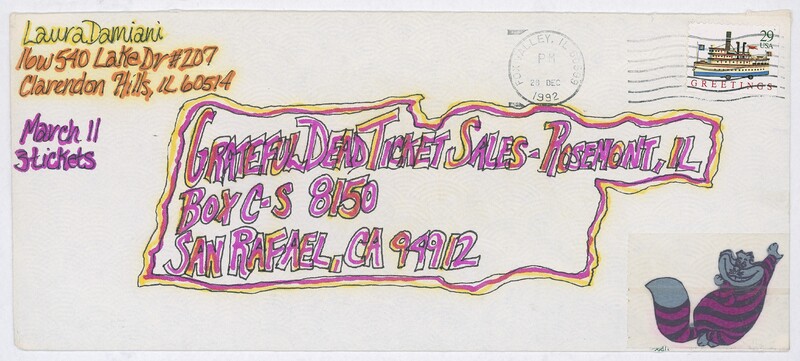 Laura Damiani
10w540 Lake Dr #207
Clarendon Hills, IL 60514
March 11
3 tickets
PM
28 DEC
1992
29
USA
GREETINGS
GRATEFUL DEAD TICKET SALES - ROSEMONT, IL
BOX C-S 8150
SAN RAFAEL, CA 94912